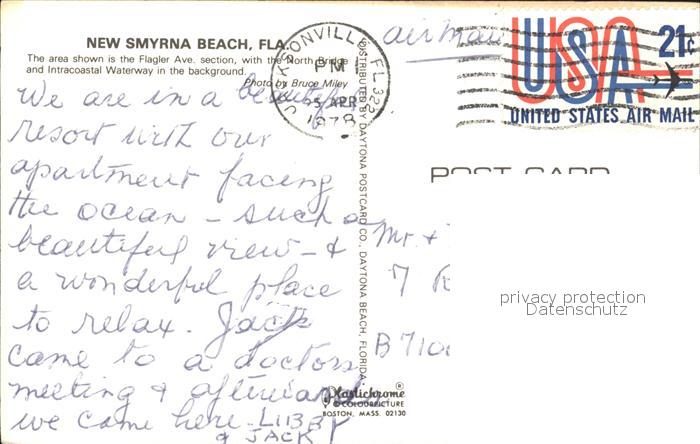 NEW SMYRNA BEACH, FLA.
The area shown is the Flagler Ave. section, with the North Bridge
and Intracoastal Waterway in the background.
Photo by Bruce Miley
We are in a beautiful
resort with our
apartment facing
the ocean – such a
beautiful view – &
a wonderful place
to relax. Jack
came to a doctors
meeting & afterwards
we came here. LIBBY
& JACK
DISTRIBUTED BY DAYTONA POSTCARD CO., DAYTONA BEACH, FLORIDA
Plastichrome®
© COLOURPICTURE
BOSTON, MASS. 02130
JACKSONVILLE, FL 322
PM
5 APR
1978
air mail
USA 21c
UNITED STATES AIR MAIL
POST CARD
Mr. &
7
B 710
privacy protection
Datenschutz